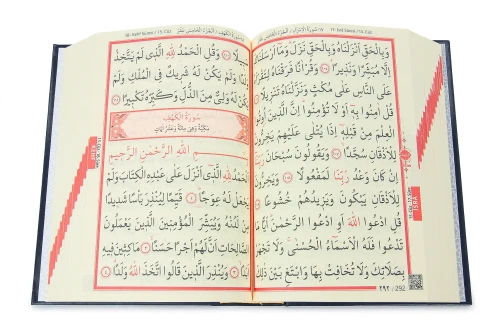 ١٧-سُورَةُ الْاِسْرَاءِ / اَلْجُزْءُ الْخَامِسُ عَشَرَ 17- İsra Suresi / 15. Cüz
وَبِالْحَقِّ اَنْزَلْنَاهُ وَبِالْحَقِّ نَزَلَ وَمَا اَرْسَلْنَاكَ
اِلَّا مُبَشِّرًا وَنَذِيرًا ﴿١٠٥﴾ وَقُرْاٰنًا فَرَقْنَاهُ لِتَقْرَاَهُ
عَلَى النَّاسِ عَلٰى مُكْثٍ وَنَزَّلْنَاهُ تَنْزِيلًا ﴿١٠٦﴾
قُلْ اٰمِنُوا بِهِ اَوْ لَا تُؤْمِنُوا اِنَّ الَّذِينَ اُوتُوا
الْعِلْمَ مِنْ قَبْلِهِ اِذَا يُتْلٰى عَلَيْهِمْ يَخِرُّونَ
لِلْاَذْقَانِ سُجَّدًا ﴿١٠٧﴾ وَيَقُولُونَ سُبْحَانَ رَبِّنَا
اِنْ كَانَ وَعْدُ رَبِّنَا لَمَفْعُولًا ﴿١٠٨﴾ وَيَخِرُّونَ
لِلْاَذْقَانِ يَبْكُونَ وَيَزِيدُهُمْ خُشُوعًا ﴿١٠٩﴾
قُلِ ادْعُوا اللّٰهَ اَوِ ادْعُوا الرَّحْمٰنَ اَيًّا مَا
تَدْعُوا فَلَهُ الْاَسْمَاءُ الْحُسْنٰى وَلَا تَجْهَرْ
بِصَلَاتِكَ وَلَا تُخَافِتْ بِهَا وَابْتَغِ بَيْنَ ذٰلِكَ
٢٩٢/292
ISRA
سُورَةُ الْكَهْفِ / اَلْجُزْءُ الْخَامِسُ عَشَرَ 18- Kehf Suresi / 15. Cüz
سَبِيلًا ﴿١١٠﴾ وَقُلِ الْحَمْدُ لِلّٰهِ الَّذِي لَمْ يَتَّخِذْ
وَلَدًا وَلَمْ يَكُنْ لَهُ شَرِيكٌ فِي الْمُلْكِ وَلَمْ
يَكُنْ لَهُ وَلِيٌّ مِنَ الذُّلِّ وَكَبِّرْهُ تَكْبِيرًا ﴿١١١﴾
سُورَةُ الْكَهْفِ
مَكِّيَّةٌ وَهِيَ مِائَةٌ وَعَشْرُ اٰيَاتٍ
بِسْمِ اللّٰهِ الرَّحْمٰنِ الرَّحِيمِ
اَلْحَمْدُ لِلّٰهِ الَّذِي اَنْزَلَ عَلٰى عَبْدِهِ الْكِتَابَ وَلَمْ
يَجْعَلْ لَهُ عِوَجًا ﴿١﴾ قَيِّمًا لِيُنْذِرَ بَاْسًا شَدِيدًا
مِنْ لَدُنْهُ وَيُبَشِّرَ الْمُؤْمِنِينَ الَّذِينَ يَعْمَلُونَ
الصَّالِحَاتِ اَنَّ لَهُمْ اَجْرًا حَسَنًا ﴿٢﴾ مَاكِثِينَ فِيهِ
اَبَدًا ﴿٣﴾ وَيُنْذِرَ الَّذِينَ قَالُوا اتَّخَذَ اللّٰهُ وَلَدًا ﴿٤﴾